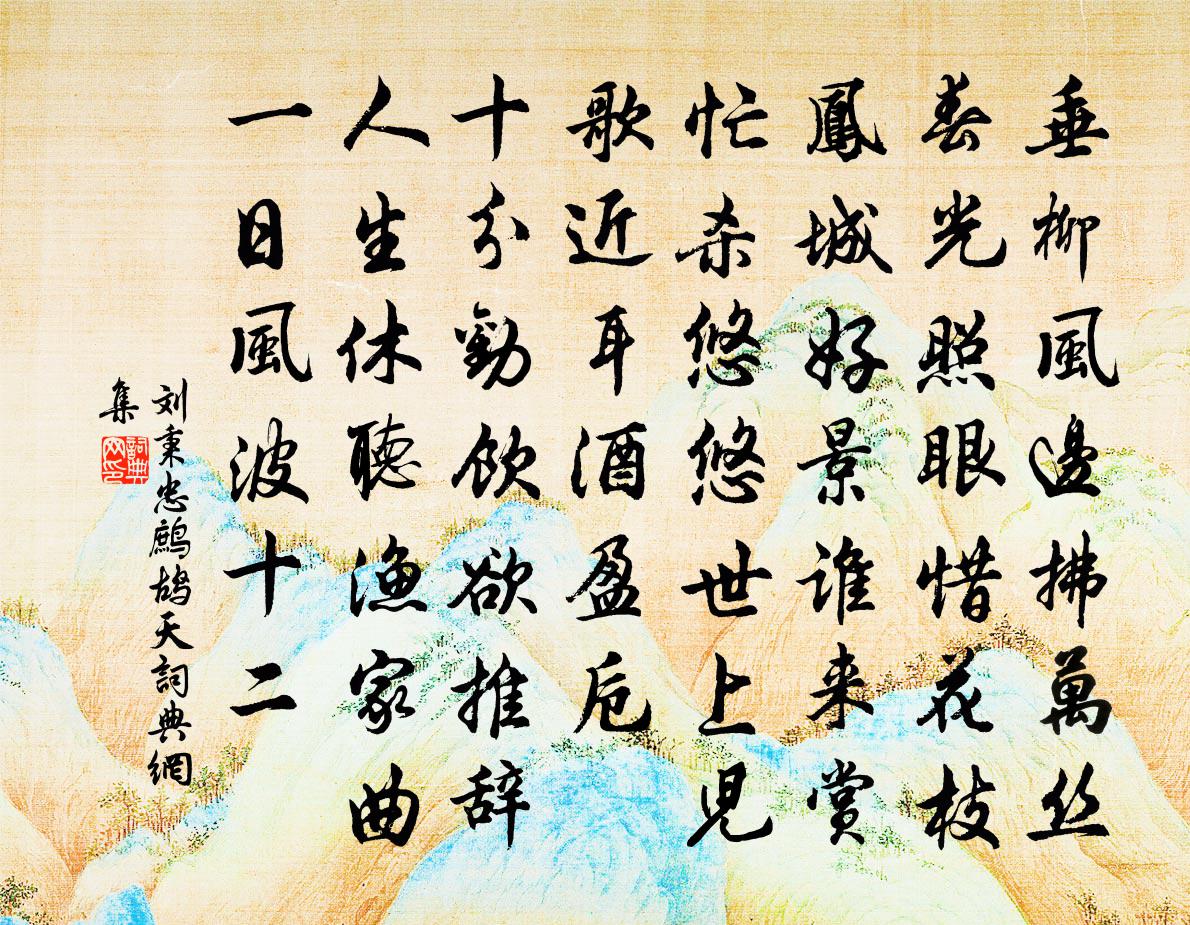 垂柳風邊拂萬丝
春光照眼惜花枝
鳳城好景谁来赏
忙杀悠悠世上児
歌近耳酒盈卮
十分勸饮欲推辞
人生休聽漁家曲
一日風波十二
刘秉忠鷓鸪天詞典網
集
詞典網印